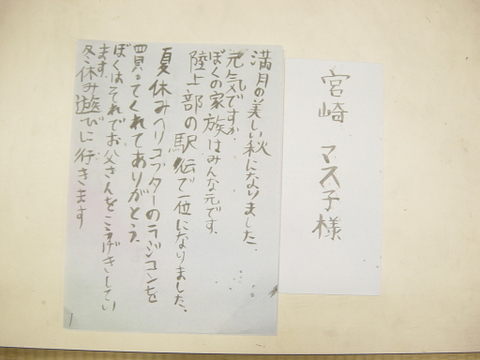 宮崎 マス子様
満月の美しい秋になりました、
元気ですか
ぼくの家族はみんな元です、
陸上部の駅伝で一位になりました、
夏休みヘリコプターのラジコンを
買ってくれてありがとう、
ぼくはそれでお父さんをこうげきしてい
ます、
冬休み遊びに行きます